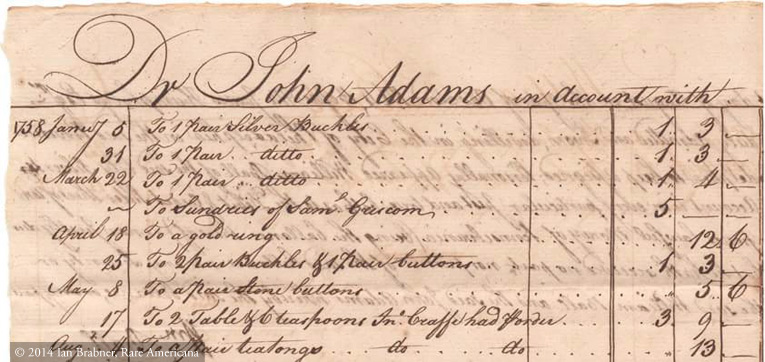 Dr John Adams in account with
1758 Jany 5 To 1 pair Silver Buckles 1. 3 —
31 To 1 pair ditto 1. 3. —
March 22 To 1 Pair ditto 1. 4 —
~ To Sundries of Saml. Griscom 5 — —
April 18 To a gold ring 12. 6
25 To 2 pair Buckles & 1 Pair buttons 1 3 —
May 8 To a pair Stone buttons 5. 6
17 To 2 Table & 6 teaspoons Jno. had 3. 9 —
To a pair teatongs do do 13 —
© 2014 Ian Brabner, Rare Americana